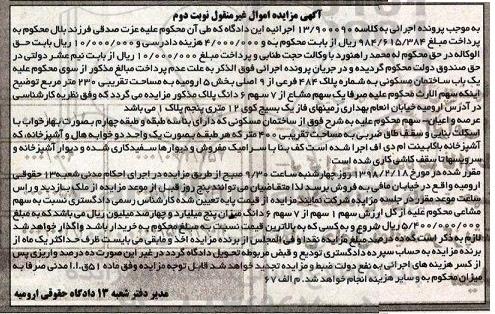 آگهی مزایده اموال غیرمنقول نوبت دوم
به موجب پرونده اجرائی به کلاسه 13/900090 اجرائیه این دادگاه که طی آن محکوم علیه عزت صدقی فرزند بلال محکوم به
پرداخت مبلغ 984/615/384 ریال از بابت محکوم به و 4/000/000 هزینه دادرسی و 10/000/000 ریال بابت حق
الوکاله در حق محکوم له محمد راهنورد با وکالت حجت طنابی و پرداخت مبلغ 10/000/000 ریال از بابت نیم عشر دولتی در
حق صندوق دولت محکوم گردیده و در جریان پرونده اجرائی فوق الذکر به علت عدم پرداخت مبالغ مذکور از سوی محکوم علیه
یک باب ساختمان مسکونی به شماره پلاک 484 فرعی از 9 اصلی بخش 5 ارومیه به مساحت تقریبی 230 متر مربع توضیح
اینکه سهم الارث محکوم علیه صرفا یک سهم مشاع از 7 سهم 6 دانگ پلاک مذکور مزایده می گردد که وفق نظریه کارشناسی
در آدرس ارومیه خیابان انعام بهداری زمینهای فاز یک بسیج کوی 12 متری پنجم پلاک 1 می باشد
عرصه و اعیان: - سهم محکوم علیه به شرح فوق از ساختمان مسکونی که دارای پنج طبقه و طبقه چهارم بصورت بهارخواب با
اسکلت بنایی و سقف طاق ضربی به مساحت تقریبی 400 متر که هر طبقه بصورت یک واحد دو خوابه هال و آشپزخانه، که
آشپزخانه با کابینت ام دی اف اجرا شده است کف بنا با سرامیک مفروش و دیوارها سفیدکاری شده و دیوار آشپزخانه و
سرویسها تا سقف کاشی کاری شده است
مقرر شده در مورخ 1398/2/18 روز چهارشنبه ساعت 9/30 صبح از طریق مزایده در اجرای احکام مدنی شعبه 13 حقوقی
ارومیه واقع در خیابان مافی به فروش برسد لذا متقاضیان می توانند پنج روز قبل از موعد مزایده از ملک بازدید و راس
ساعت موعد مقرر در جلسه مزایده شرکت نمایند مزایده از قیمت پایه تعیین شده کارشناس رسمی دادگستری نسبت به سهم
مشاعی محکوم علیه از کل ارزش سهم 1 سهم از 7 سهم 6 دانگ میزان پنج میلیارد و چهارصد میلیون ریال می باشد که به مبلغ
5/400/000/000 ریال شروع و به کسی که به بالاترین قیمت نسبت به مبلغ محکوم به خریدار باشد واگذار خواهد شد
لازم به ذکر است که ده درصد مبلغ مزایده نقدا و فی المجلس از برنده مزایده اخذ و مابقی می بایست ظرف حداکثر یک ماه از
برنده مزایده به حساب سپرده دادگستری تودیع و قبض مربوطه تحویل دادگاه گردد در غیر این صورت ده درصد واریزی پس
از کسر هزینه های اجرائی به نفع دولت ضبط و مزایده تجدید خواهد شد قابل توجه مزایده وفق ماده 51 ق.ا.ا مدنی صرفا به
میزان محکوم به و سایر هزینه انجام خواهد شد. م الف 67
مدیر دفتر شعبه 13 دادگاه حقوقی ارومیه